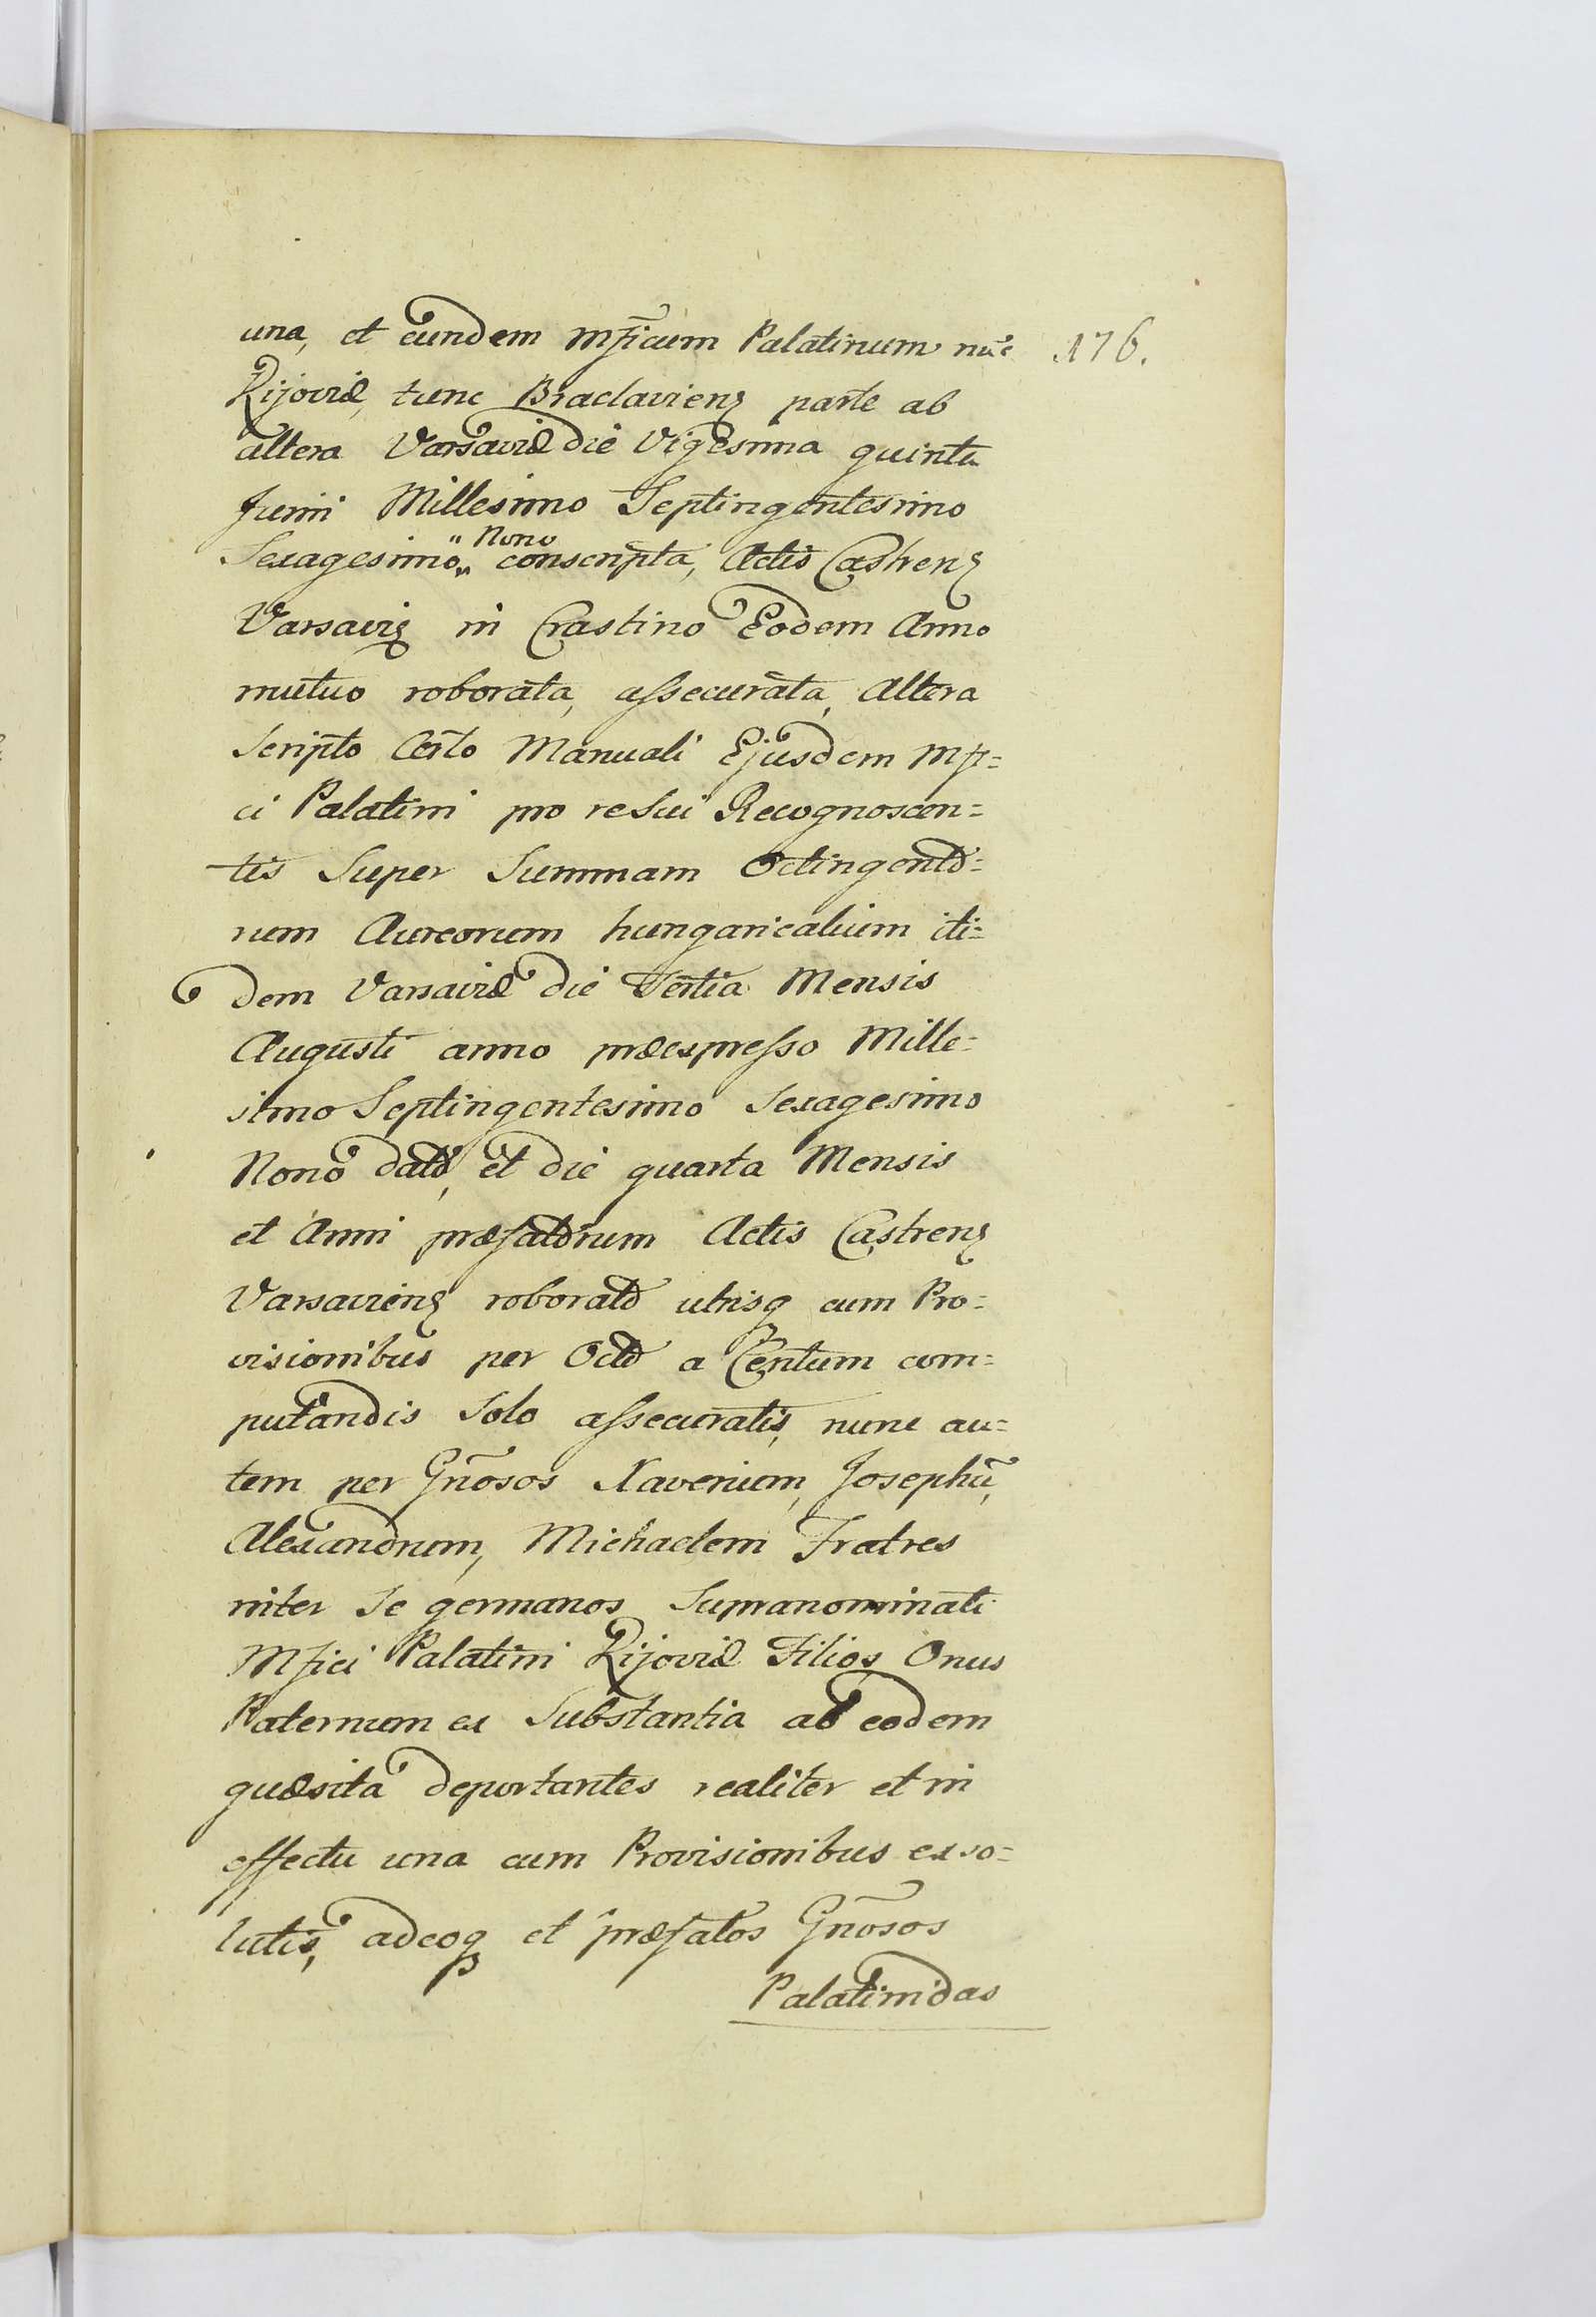 una, et eundem Mficum Palatinum nuc 176.
Kijoviæ, tunc Braclavienſ parte ab
altera Varsaviæ die Vigesima quinta
Junii Millesimo Septingentesimo
Sexagesimo „Nono„ conscripta, Actis Castrenſ
Varsavię in Crastino Eodem Anno
mutuo roborata, assecurata, altera
Scripto Certo Manuali Ejusdem Mfi=
ci Palatini pro re Sui Recognoscen=
tis Super Summam Octingento=
rum Aureorum hungaricalium iti=
dem Varsaviæ die Tertia Mensis
Augusti anno præexpresso Mille=
simo Septingentesimo Sexagesimo
Nono dato, et die quarta Mensis
et Anni præfatorum Actis Castrenſ
Varsavienſ roborato utrisq cum Pro=
visionibus per Octo a Centum com=
putandis Solo assecuratis, nunc au=
tem per Gñosos Xaverium, Josephũ,
Alexandrum, Michaelem Fratres
inter Se germanos Supranominati
Mfici Palatini Kijoviæ Filios Onus
Paternum ex Substantia ab eodem
quæsita deportantes realiter et in
effectu una cum Provisionibus exso=
lutis, adeoq et præfatos Gñosos
Palatinidas